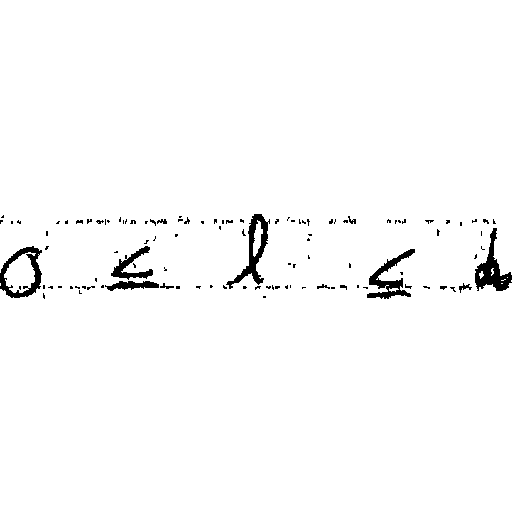 0 ≤ l ≤ d